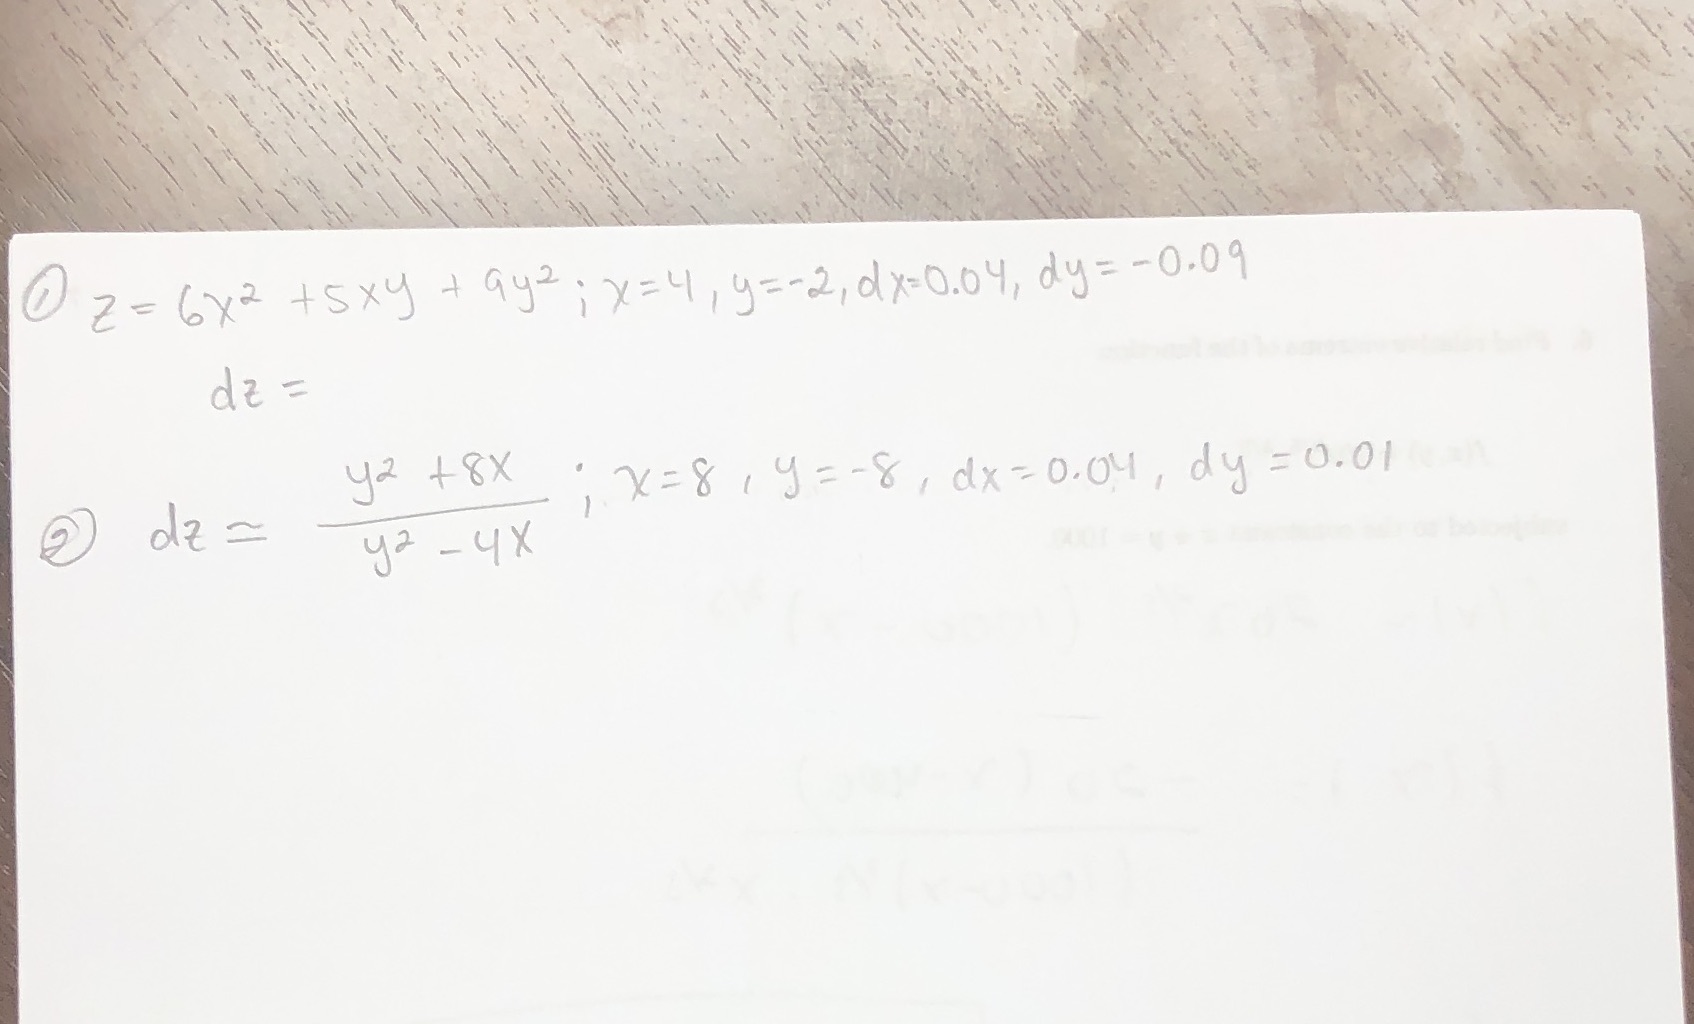 ① z = 6x² + 5xy + 9y² ; x=4, y=-2, dx=0.04, dy=-0.09
dz =
② dz ≃ y² + 8x / y² - 4x ; x=8, y=-8, dx=0.04, dy=0.01